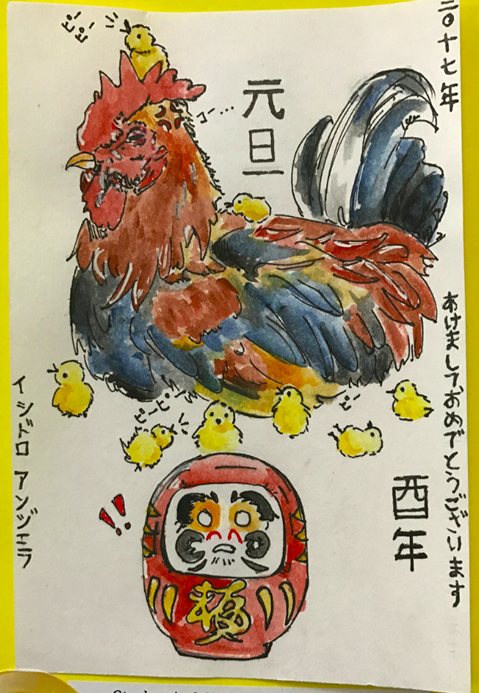 二〇十七年
あけましておめでとうございます
元旦
酉年
コー…
ピーピー
ピーピー
ピー
!!
イシドロ アンヅェラ